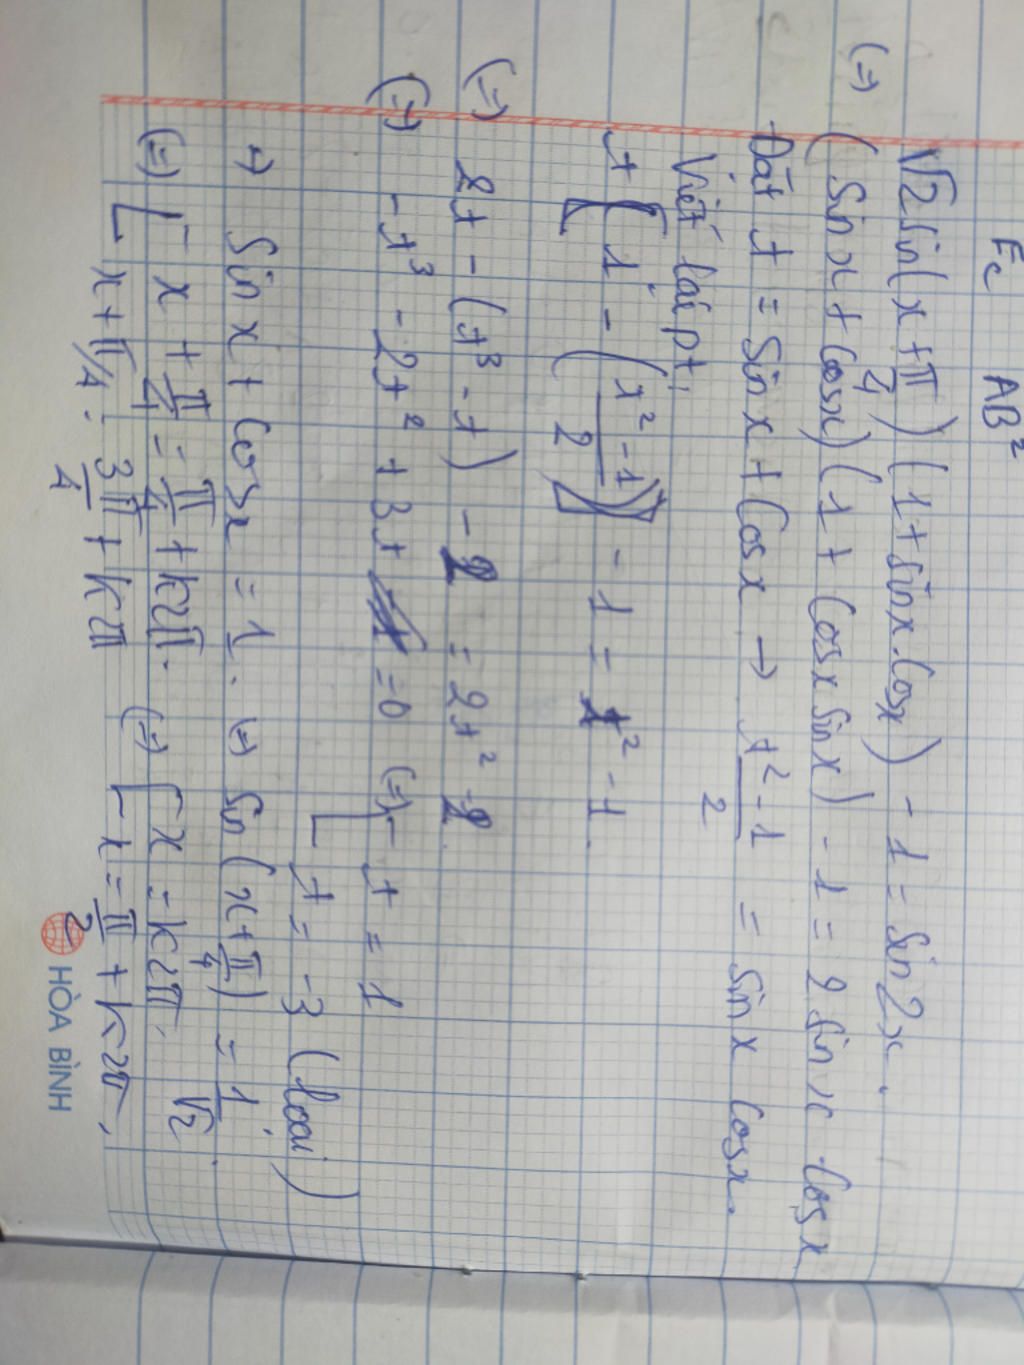 Ec AB²
√2 sin(x + π/4)(1 + sinx.cosx) - 1 = sin2x.
(=) (Sinx + Cosx)(1 + Cosx sinx) - 1 = 2 sinx cosx
Đặt t = Sinx + Cosx → (t² - 1)/2 = sinx cosx.
Viết lại pt:
t[1 - ((t² - 1)/2)] - 1 = t² - 1.
(=) 2t - (t³ - t) - 2 = 2t² - 2
(=) -t³ - 2t² + 3t = 0 (=) [ t = 1
t = -3 (loại)
=> Sinx + Cosx = 1. (=) Sin(x + π/4) = 1/√2.
(=) [ x + π/4 = π/4 + k2π. (=) [ x = k2π.
x + π/4 . 3π/4 + k2π x = π/2 + k2π.
HÒA BÌNH